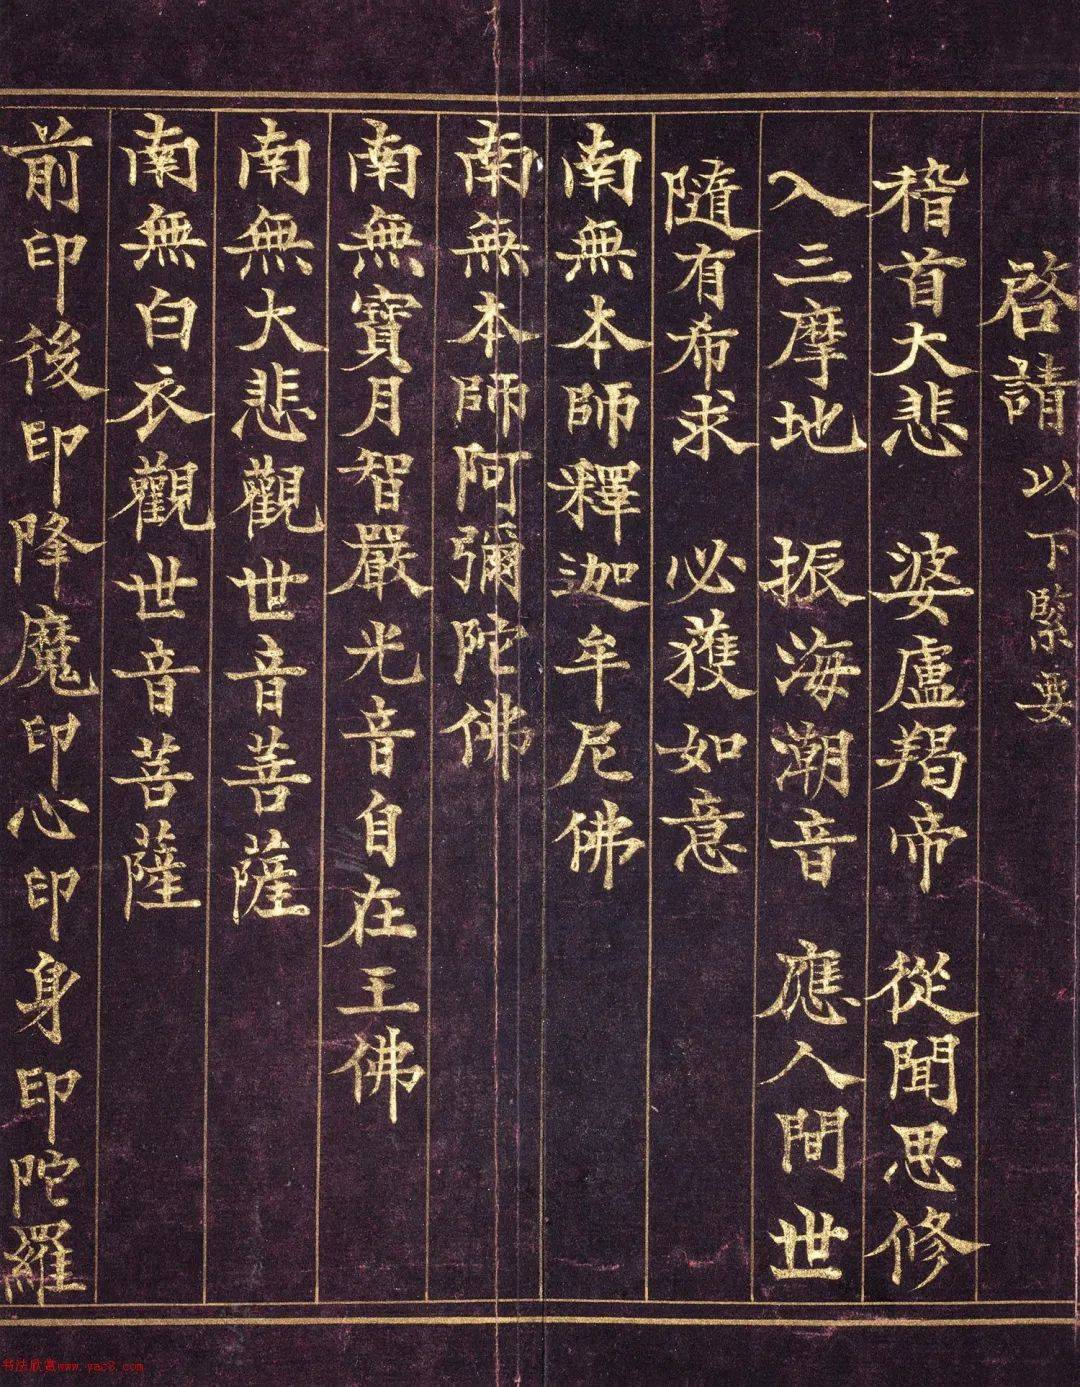 啓請 以下緊要
稽首大悲 婆盧羯帝 從聞思修
入三摩地 振海潮音 應人間世
隨有希求 必獲如意
南無本師釋迦牟尼佛
南無本師阿彌陀佛
南無寶月智嚴光音自在王佛
南無大悲觀世音菩薩
南無白衣觀世音菩薩
前印後印降魔印心印身印陀羅
书法欣赏www.yac8.com